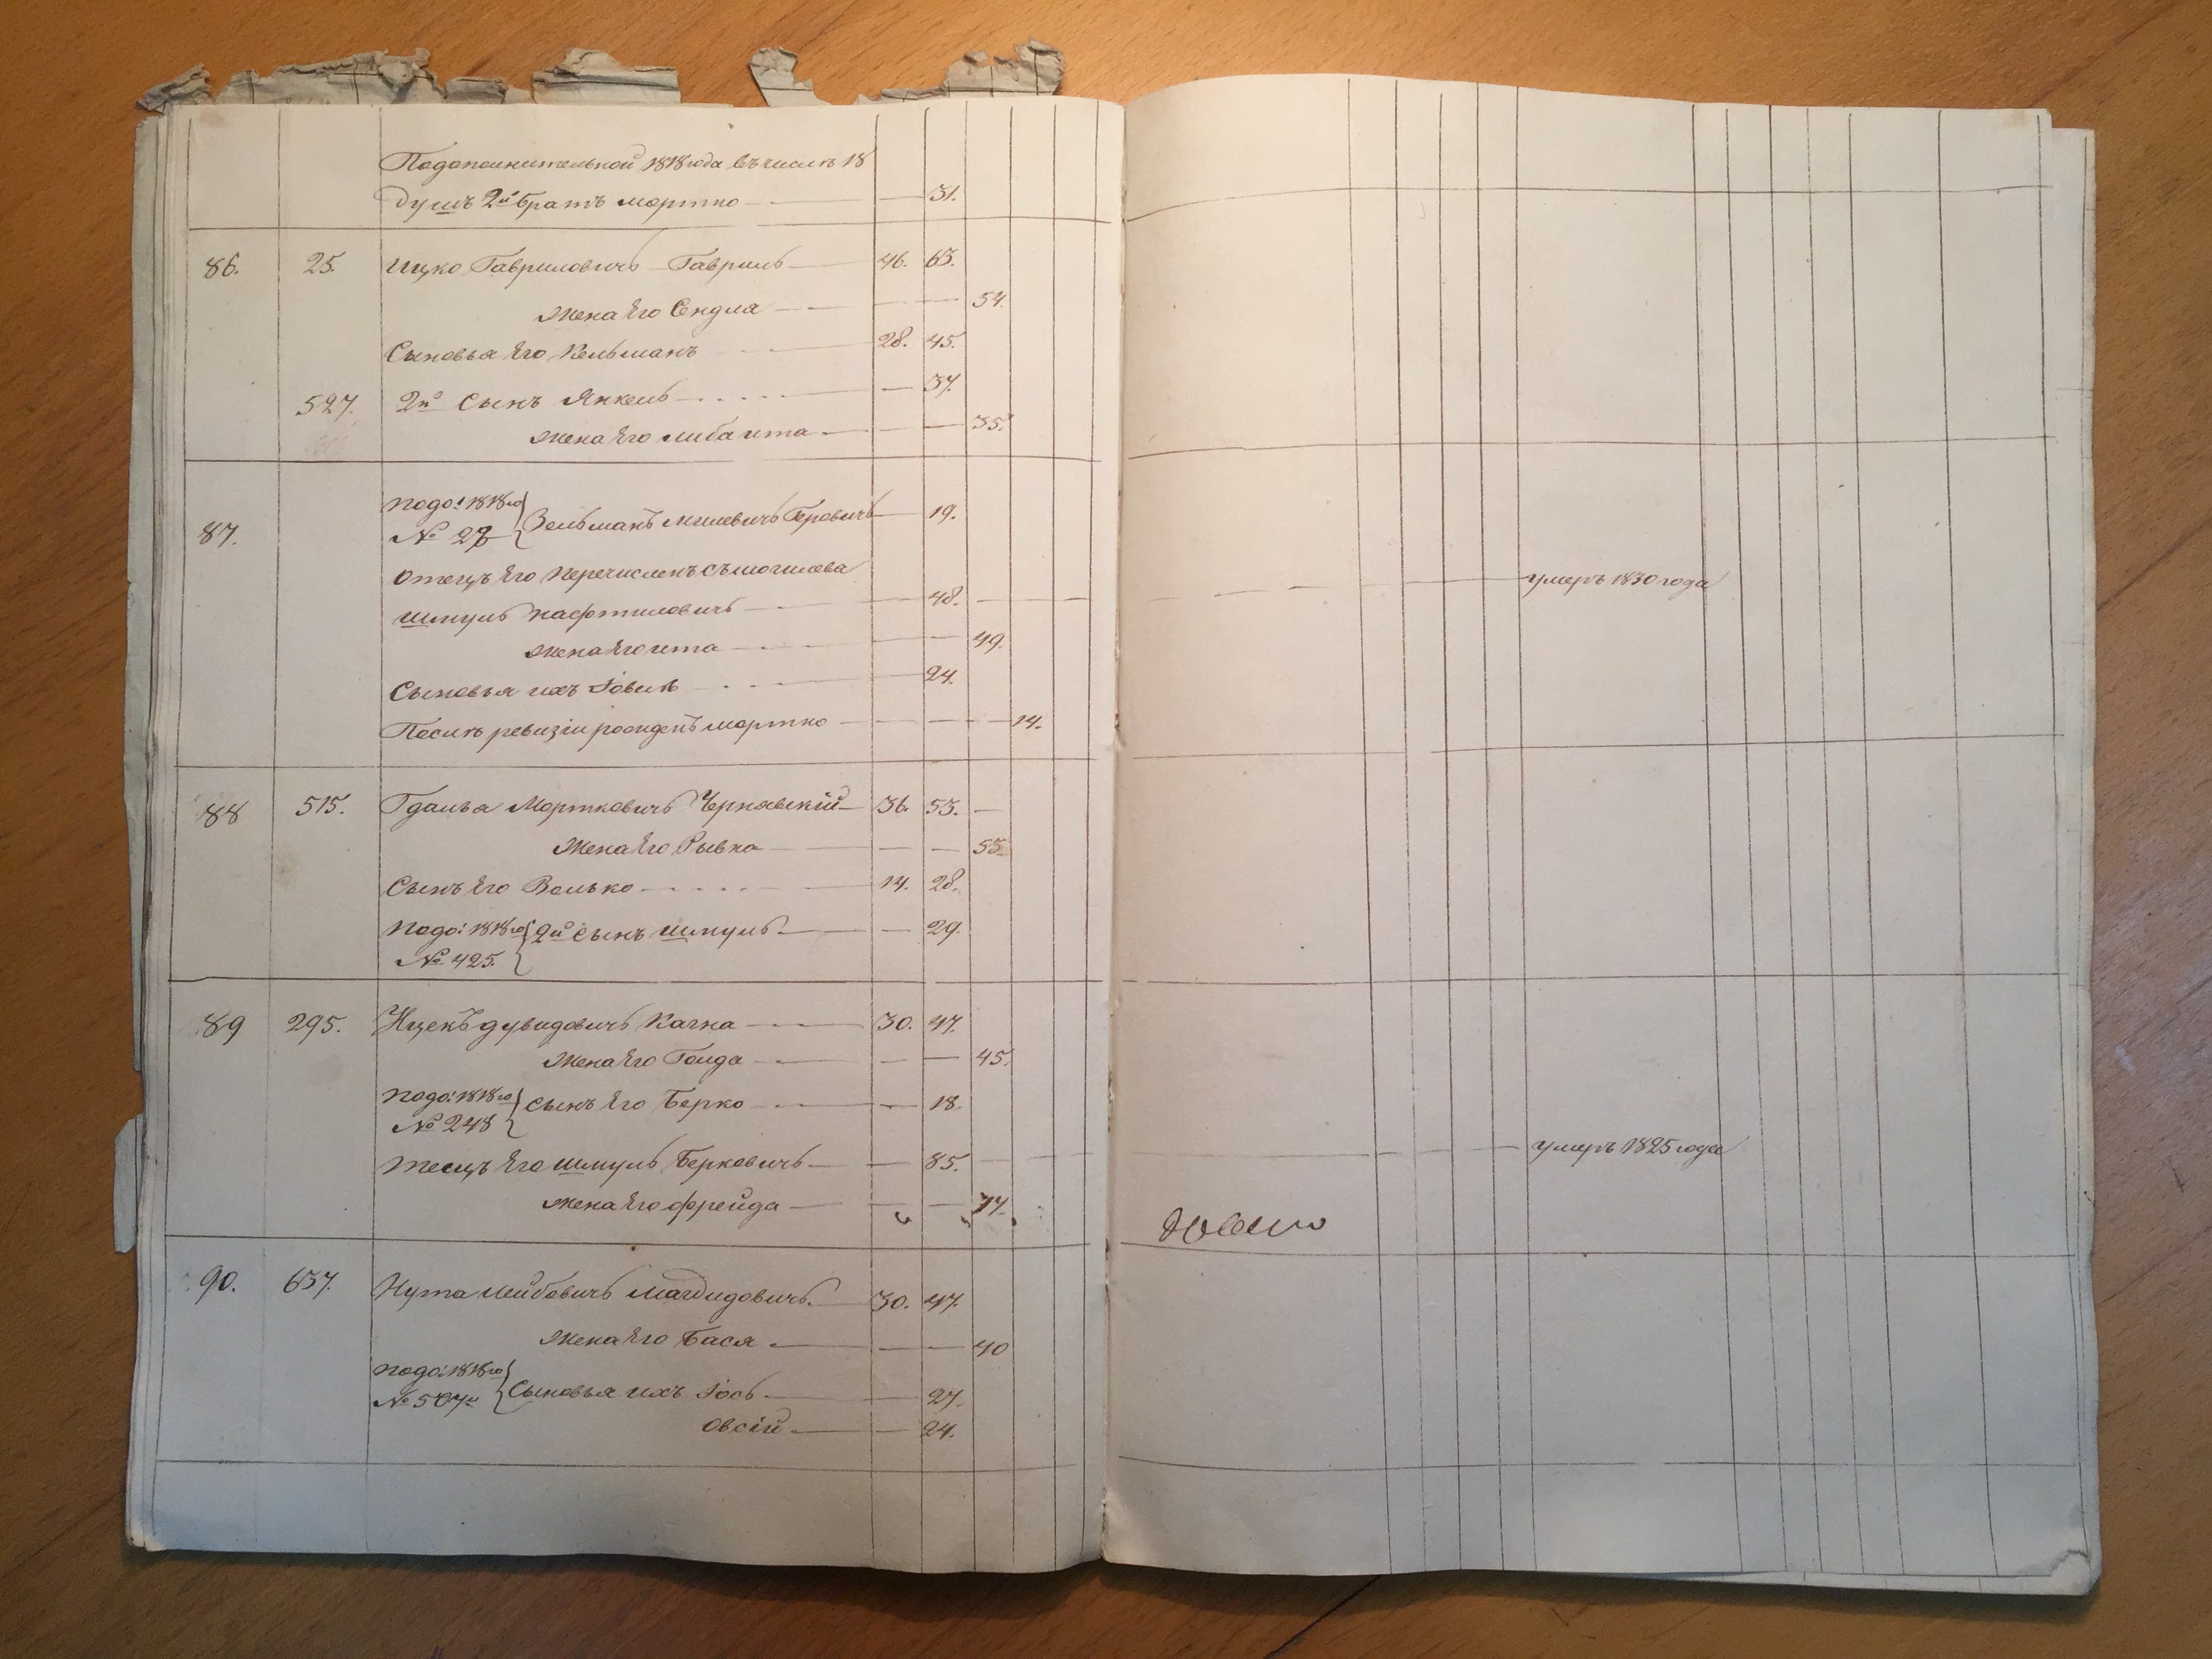 Подополнительной 1818 года въ числѣ 18
душъ 2й братъ мортко — 31.
86. 25. Ицко Гавриловичъ Гаврилъ — 46. 63.
жена его Сендла — 54.
Сыновья его Кельманъ — 28. 45.
527. 2й сынъ Янкель — 37.
жена его либа ита — 35.
87. подо: 1818го Зельманъ Беровичъ — 19.
№ 27
отецъ его перечисленъ съ могилева умеръ 1830 года
шмуль нафтиловичъ — 48.
жена его ита — 49.
Сыновья ихъ Іовиль — 24.
Послѣ ревизіи рожденъ мортко — 14.
88 515. Гдалья Мортковичъ Чернявскій — 36. 53. —
жена его Рывка — 55.
Сынъ его Волько — 14. 28.
подо: 1818го 2й сынъ шмуль — 29.
№ 425.
89 295. Ицекъ дувидовичъ Качка — 30. 47.
жена его Голда — 45.
подо: 1818го сынъ его Берко — 18.
№ 248
тесць его шмуль Берковичъ — 85. умеръ 1825 года
жена его фрейда — 77.
90. 637. Нута лейбовичъ — 30. 47.
жена его Бася — 40
подо: 1818го Сыновья ихъ Іось — 27.
№ 507й
овсій — 24.